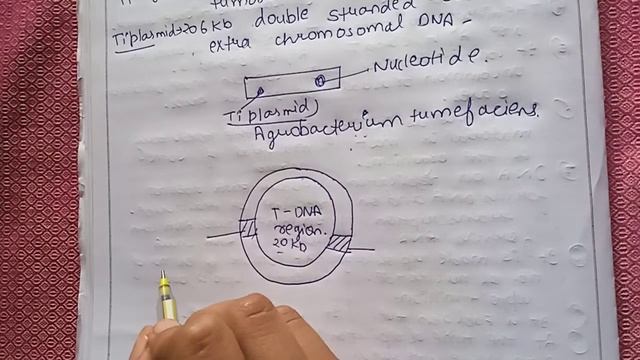 Ti plasmid→206 Kb double stranded
extra chromosomal DNA-
Nucleotide.
Ti plasmid
Agrobacterium tumefaciens.
T-DNA
region.
20Kb